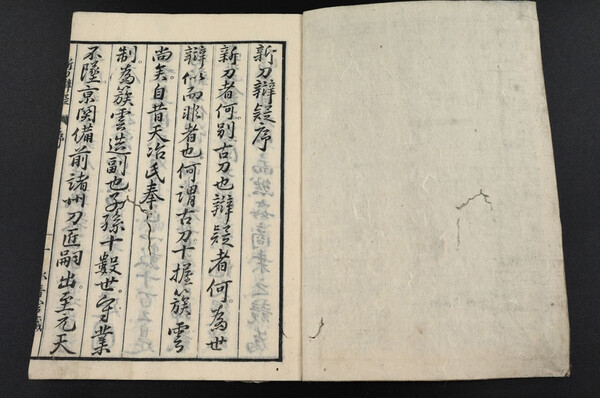 新刀辯疑序
新刀者何。別古刀也。辯疑者何。為世
辯似而非者也。何謂古刀。十握簇雲
尚矣。自昔天冶氏奉
制為簇雲造副也。子孫十數世。守業
不墜。京関備前諸州刀匠嗣出。至元天
序